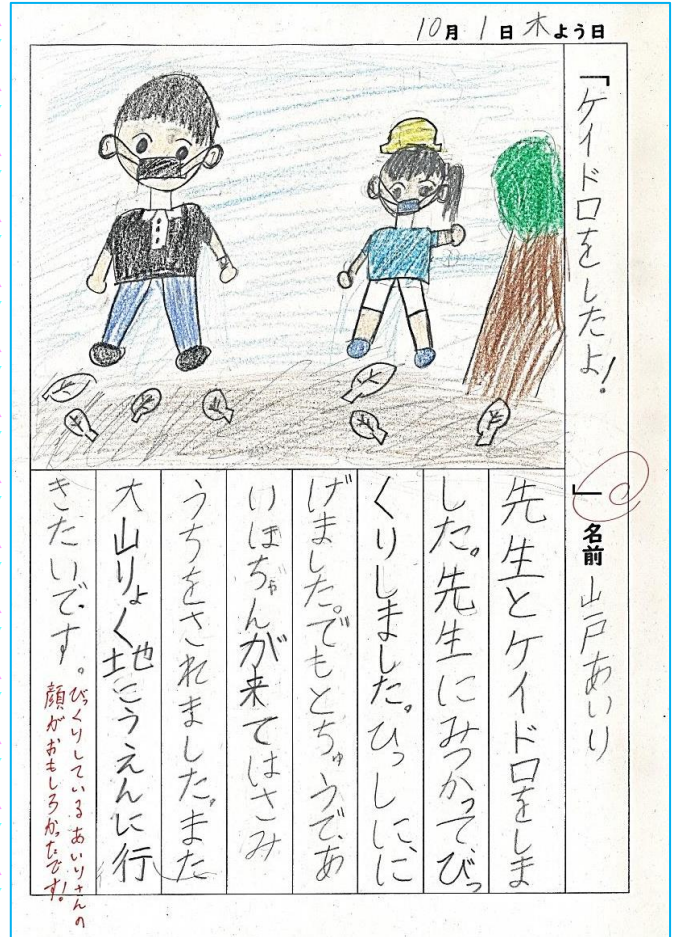 10月1日木よう日
「ケイドロをしたよ！」名前 山戸あいり
先生とケイドロをしま
した。先生にみつかって、びっ
くりしました。ひっしに、に
げました。でもとちゅうで、あ
いほちゃんが来てはさみ
うちをされました。また
大山りょく地こうえんに行
きたいです。
びっくりしているあいりさんの
顔がおもしろかったです！